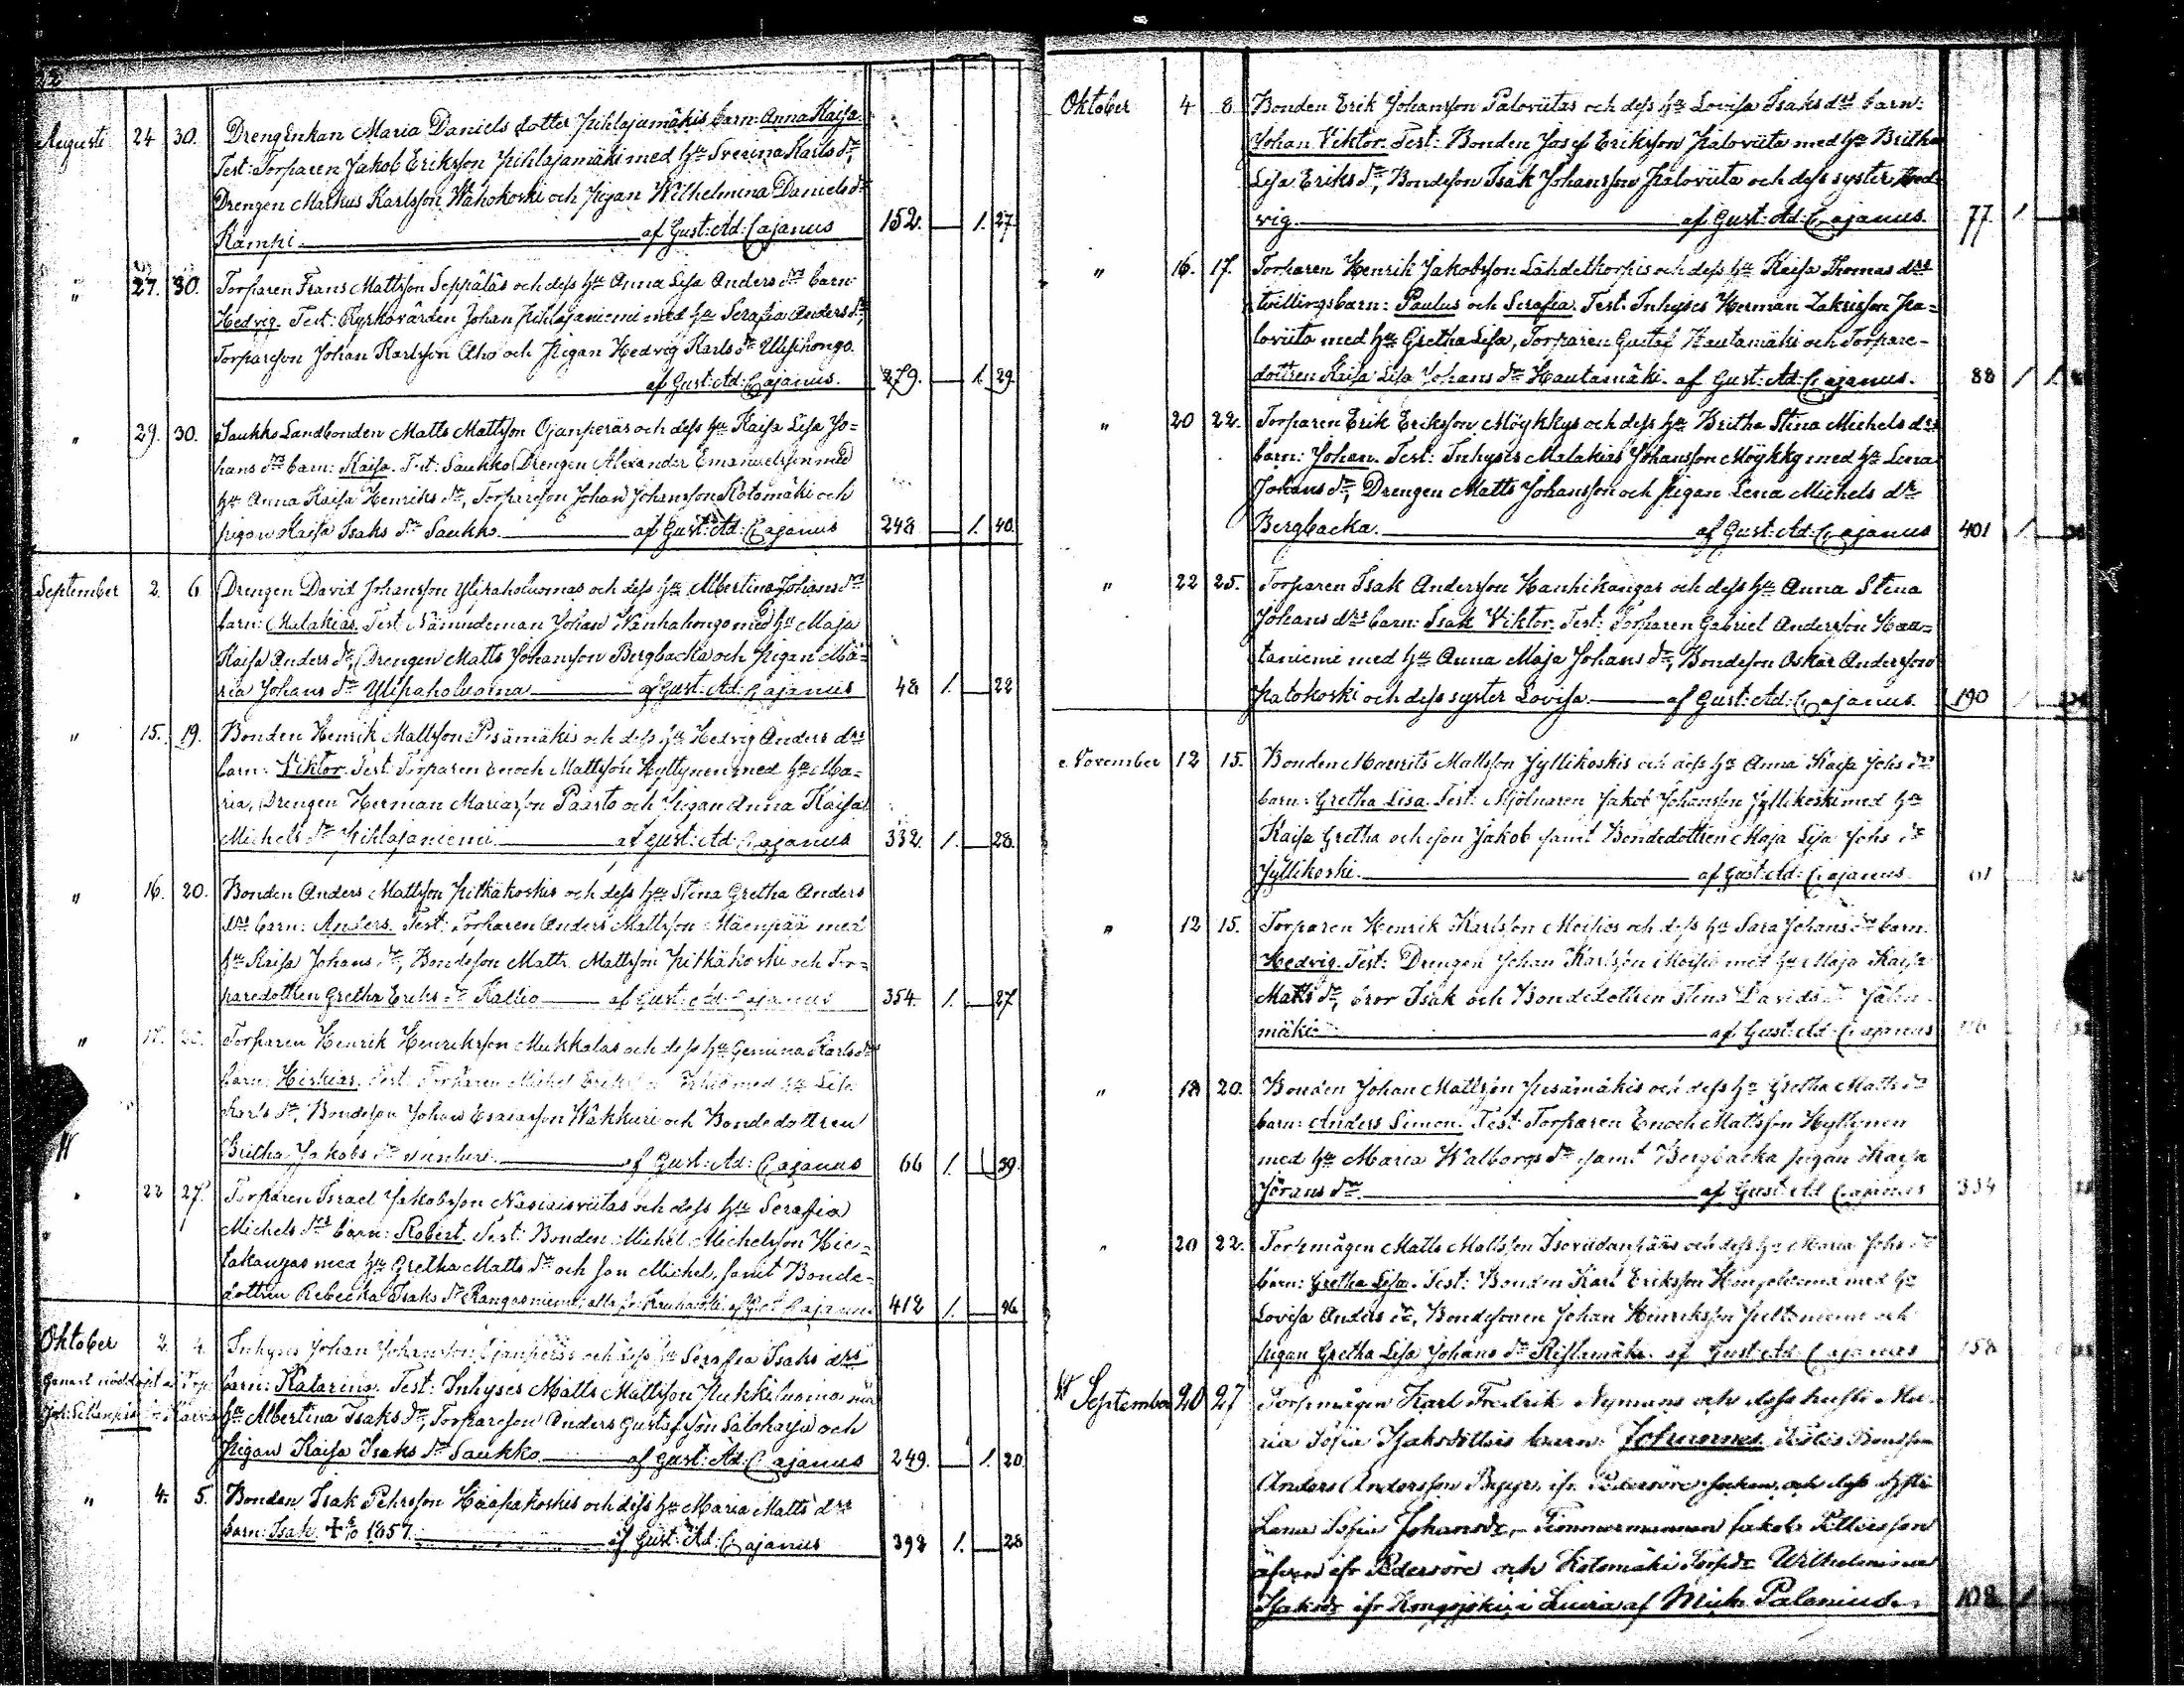 Augusti 24 30. Drengenkan Maria Daniels dotter Pihlajamäkis barn: Anna Kaisa.
Test: Torparen Jakob Eriksson Pihlajamäki med hu Sverina Karls dr,
Drengen Markus Karlsson Wähäkoski och Pigan Wilhelmina Daniels dr
Kampi. af Gust: Ad: Cajanus 152. 1. 27.
" 27. 30. Torparen Frans Mattsson Seppäläs och dess hu Anna Lisa Anders drs barn:
Hedvig. Test: Kyrkovärden Johan Pihlajaniemi med hu Serafia Anders dr,
Torpareson Johan Karlsson Aho och Pigan Hedvig Karls dr Uusihongo.
af Gust: Ad: Cajanus. 279. 1. 29.
" 29. 30. Saukko Landbonden Matts Mattsson Ojanperäs och dess hu Kaisa Lisa Jo=
hans drs barn: Kaisa. Test: Saukko Drengen Alexander Emanuelsson med
hu Anna Kaisa Henriks dr, Torpareson Johan Johansson Kotomäki och
pigan Kaisa Isaks dr Saukko. af Gust: Ad: Cajanus 248 1. 40.
September 2. 6 Drengen David Johansson Ylipaholuomas och dess hu Albertina Johans drs
barn: Malakias. Test Nämndeman Johan Wanhahongo med hu Maja
Kaisa Anders dr, Drengen Matts Johansson Bergbacka och Pigan Ma=
ria Johans dr Ylipaholuoma af Gust: Ad: Cajanus 48 1. 22
" 15. 19. Bonden Henrik Mattsson Pesämäkis och dess hu Hedvig Anders drs
barn: Viktor. Test: Torparen Enoch Mattsson Kyllynen med hu Ma=
ria, Drengen Herman Mariasson Paarto och Pigan Anna Kaisa
Michels dr Pihlajaniemi. af Gust: Ad: Cajanus 332. 1. 28.
" 16. 20. Bonden Anders Mattsson Pitkäkoskis och dess hu Stina Gretha Anders
drs barn: Anders. Test: Torparen Anders Mattsson Mäenpää med
hu Kaisa Johans dr, Bondeson Matts Mattsson Pitkäkoski och Tor=
paredottren Gretha Eriks dr Kallio af Gust: Ad: Cajanus 354. 1. 27.
" 17. Torparen Henrik Henriksson Mukkalas och dess hu Gemina Karls drs
barn: Hiskias. Test: Torparen Michel med hu Lisa
Karls dr, Bondeson Johan Esaiasson Wakkuri och Bondedottren
Britha Jakobs dr af Gust: Ad: Cajanus 66 1. 39.
" 22 27. Torparen Israel Jakobsson och dess hu Serafia
Michels drs barn: Robert. Test: Bonden Michel Michelsson Hie=
takangas med hu Gretha Matts dr och son Michel, samt Bonde=
dottren Rebecka Isaks dr Kangasniemi 412 1. 36
Oktober 2. 4. Inhyses Johan Johansson Ojanperäs och dess hu Serafia Isaks drs
barn: Katarina. Test: Inhyses Matts Mattsson med
hu Albertina Isaks dr, Torpareson Anders Gustafsson Salokangas och
Pigan Kaisa Isaks dr Saukko. af Gust: Ad: Cajanus 249. 1. 20.
" 4. 5. Bonden Isak Pehrsson Haapakoskis och dess hu Maria Matts drs
barn: Isak. † 5/10 1857. af Gust: Ad: Cajanus 392 1. 28
Oktober 4 8. Bonden Erik Johansson Paloviitas och dess hu Lovisa Isaks drs barn:
Johan Viktor. Test: Bonden Josef Eriksson Paloviita med hu Britha
Lisa Eriks dr, Bondeson Isak Johansson Paloviita och dess syster Hed=
vig. af Gust: Ad: Cajanus. 77. 1
" 16. 17. Torparen Henrik Jakobsson Lähdekorpis och dess hu Kaisa Thomas drs
tvillingsbarn: Paulus och Serafia. Test: Inhyses Herman Zakrisson Pa=
loviita med hu Gretha Lisa, Torparen Gustaf Hautamäki och Torpare=
dottren Kaisa Lisa Johans dr Hautamäki. af Gust: Ad: Cajanus. 88 1 1.
" 20 22. Torparen Erik Eriksson Möykkys och dess hu Britha Stina Michels drs
barn: Johan. Test: Inhyses Malakias Johansson Möykky med hu Lena
Johans dr, Drengen Matts Johansson och Pigan Lena Michels dr
Bergbacka. af Gust: Ad: Cajanus 401 1
" 22 25. Torparen Isak Andersson Hanhikangas och dess hu Anna Stina
Johans drs barn: Isak Viktor. Test: Torparen Gabriel Andersson Hau=
taniemi med hu Anna Maja Johans dr, Bondeson Oskar Andersson
Palokoski och dess syster Lovisa. af Gust: Ad: Cajanus. 190
November 12 15. Bonden Maurits Mattsson Jyllikoskis och dess hu Anna Kaisa Johs drs
barn: Gretha Lisa. Test: Mjölnaren Jakob Johansson Jyllikoski med hu
Kaisa Gretha och son Jakob samt Bondedottren Maja Lisa Johs dr
Jyllikoski. af Gust: Ad: Cajanus
" 12 15. Torparen Henrik Karlsson Moisios och dess hu Sara Johans drs barn:
Hedvig. Test: Drengen Johan Karlsson Moisio med hu Maja Kaisa
Matts dr, bror Isak och Bondedottren Stina Davids dr
mäki af Gust: Ad: Cajanus
" 18 20. Bonden Johan Mattsson Pesämäkis och dess hu Gretha Matts drs
barn: Anders Simon. Test: Torparen Enoch Mattsson Kyllynen
med hu Maria Walborgs dr samt Bergbacka pigan Kaisa
Jörans dr. af Gust: Ad: Cajanus 334
" 20 22. Torpmågen Matts Mattsson och dess hu Maria Johs drs
barn: Gretha Lisa. Test: Bonden Karl Eriksson med hu
Lovisa Anders dr, Bondesonen Johan Henriksson Peltoniemi och
pigan Gretha Lisa Johans dr Ristimäki. af Gust: Ad: Cajanus 158
September 20 27 Torpmågen Karl Fredrik Nymans och dess hustru Ma=
ria Sofia Isaksdotters barn: Johannes. Testes Bondson
Anders Andersson ifr. Pedersöre socken och dess hustru
Lena Sofia Johansdr, Timmermannen Jakob
äfven ifr Pedersöre och Kotomäki Torpdr Wilhelmina
Isaksdr ifr i af Mich. Palanius. 108 1